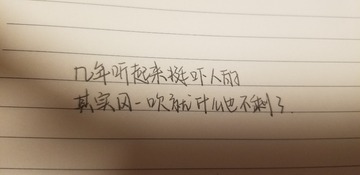 几年听起来挺吓人的
其实风一吹就什么也不剩了